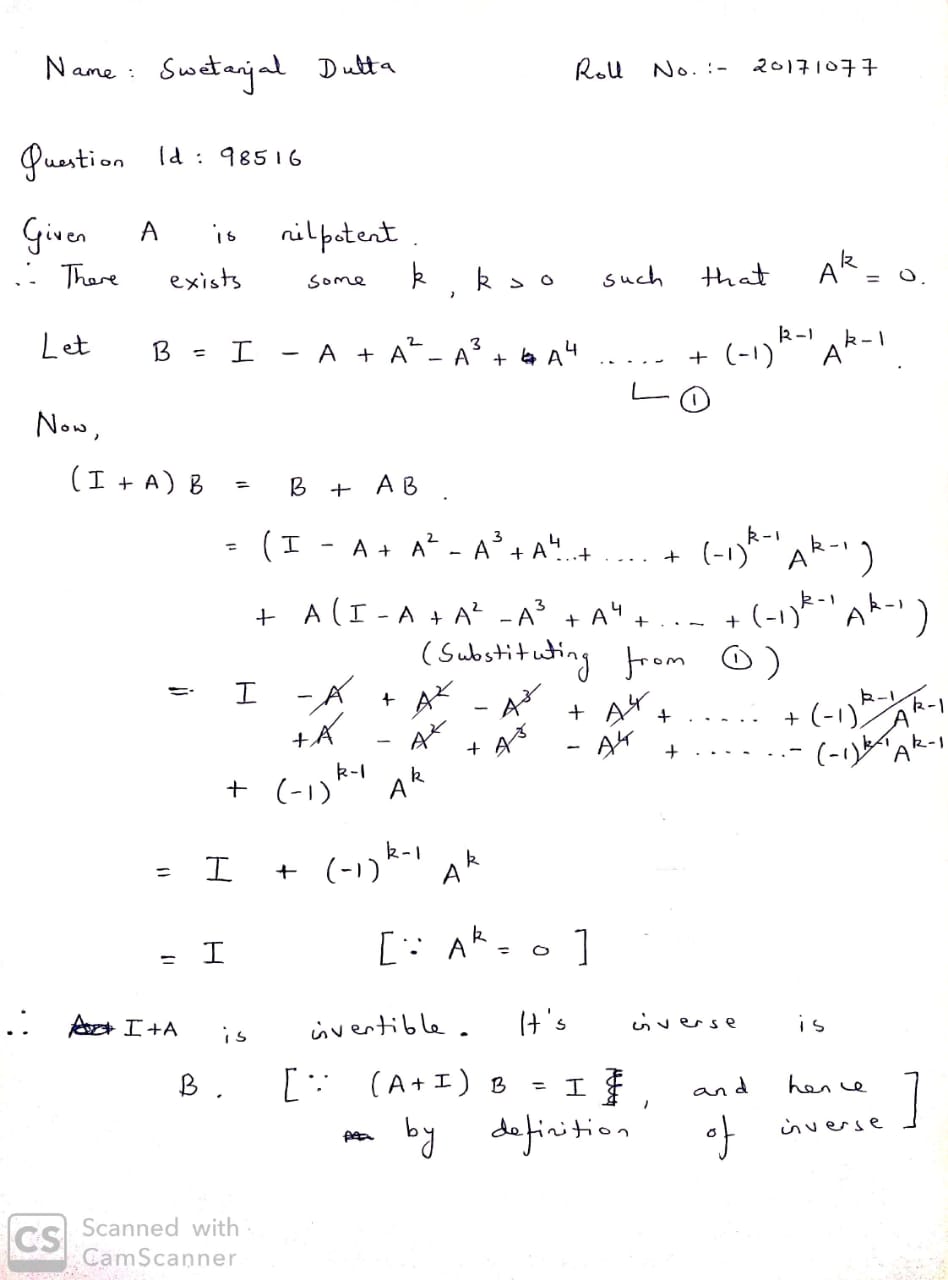 Name : Swetanjal Dutta Roll No. :- 20171077
Question Id : 98516
Given A is nilpotent.
∴ There exists some k, k > 0 such that A^k = 0.
Let B = I - A + A² - A³ + A⁴ ..... + (-1)^{k-1} A^{k-1}.
①
Now,
(I + A) B = B + AB.
= (I - A + A² - A³ + A⁴..+ .... + (-1)^{k-1} A^{k-1})
+ A(I - A + A² - A³ + A⁴ + ... + (-1)^{k-1} A^{k-1})
(Substituting from ①)
= I - A + A² - A³ + A⁴ + ...... + (-1)^{k-1} A^{k-1}
+A - A² + A³ - A⁴ + ....... - (-1)^{k-1} A^{k-1}
+ (-1)^{k-1} A^k
= I + (-1)^{k-1} A^k
= I [∵ A^k = 0]
∴ I+A is invertible. It's inverse is
B. [∵ (A+I) B = I, and hence
by definition of inverse]
CS Scanned with
CamScanner